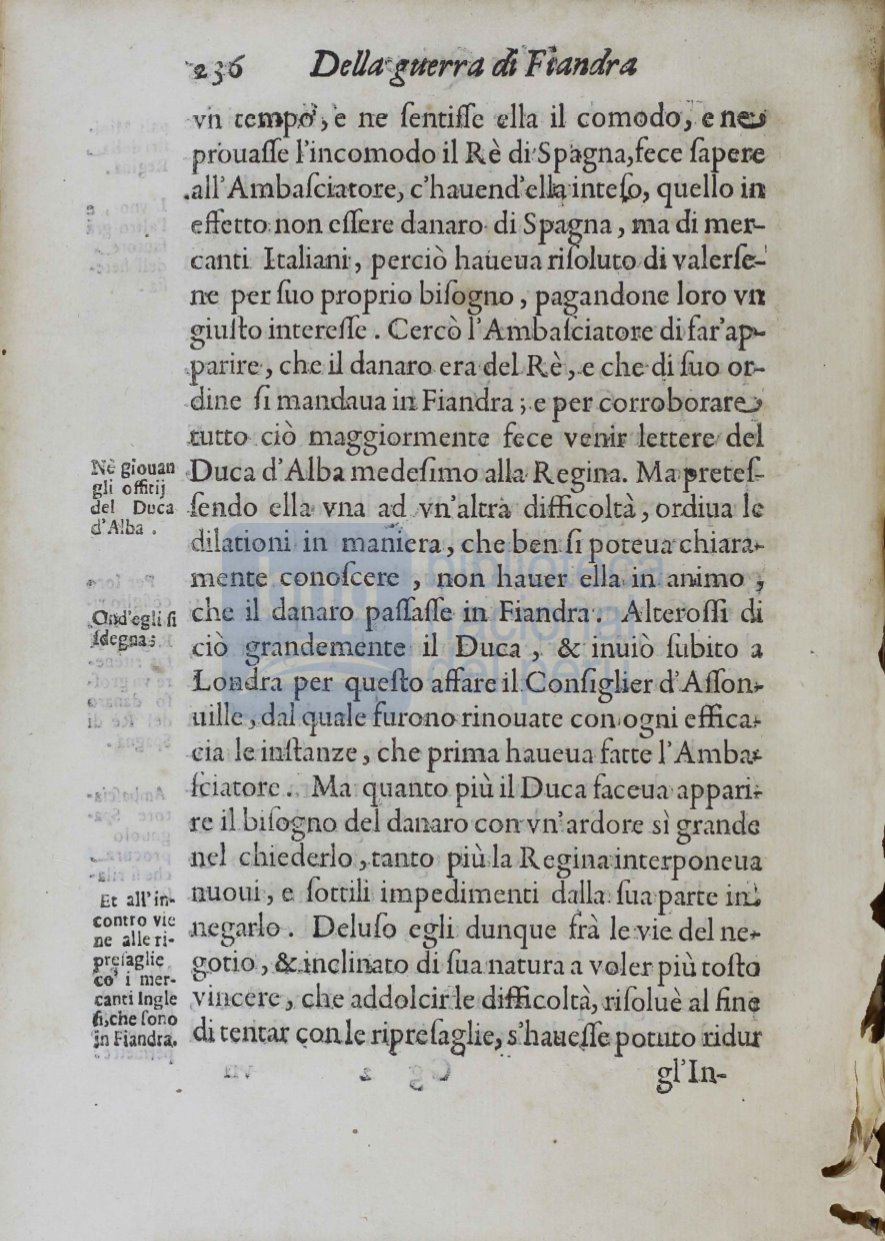 236 Della guerra di Fiandra
vn tempo, e ne ſentiſſe ella il comodo, e ne
prouaſſe l'incomodo il Rè di Spagna, fece ſapere
all'Ambaſciatore, c'hauend'ella inteſo, quello in
effetto non eſſere danaro di Spagna, ma di mer-
canti Italiani, perciò haueua riſoluto di valerſe-
ne per ſuo proprio biſogno, pagandone loro vn
giuſto intereſſe. Cercò l'Ambaſciatore di far'ap-
parire, che il danaro era del Rè, e che di ſuo or-
dine ſi mandaua in Fiandra; e per corroborare
tutto ciò maggiormente fece venir lettere del
Duca d'Alba medeſimo alla Regina. Ma preteſ-
ſendo ella vna ad vn'altra difficoltà, ordiua le
dilationi in maniera, che ben ſi poteua chiara-
mente conoſcere, non hauer ella in animo,
che il danaro paſſaſſe in Fiandra. Alteroſſi di
ciò grandemente il Duca, & inuiò ſubito a
Londra per queſto affare il Conſiglier d'Aſſon-
uille, dal quale furono rinouate con ogni effica-
cia le inſtanze, che prima haueua fatte l'Amba-
ſciatore. Ma quanto più il Duca faceua appari-
re il biſogno del danaro con vn'ardore sì grande
nel chiederlo, tanto più la Regina interponeua
nuoui, e ſottili impedimenti dalla ſua parte in
negarlo. Deluſo egli dunque frà le vie del ne-
gotio, & inclinato di ſua natura a voler più toſto
vincere, che addolcir le difficoltà, riſoluè al fine
di tentar con le ripreſaglie, s'haueſſe potuto ridur
gl'In-
Nè giouan
gli offitij
del Duca
d'Alba.
Ond'egli ſi
ſdegna:
Et all'in-
contro vie
ne alle ri-
preſaglie
co' i mer-
canti Ingle
ſi, che ſono
in Fiandra.
biblioteca
nacional
del perú